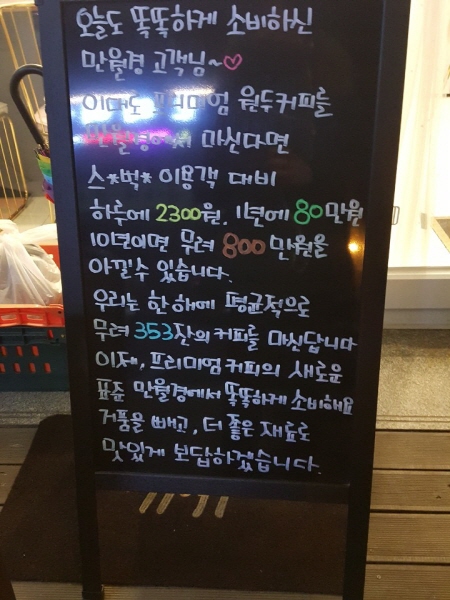 오늘도 똑똑하게 소비하신
만월경 고객님~♡
이대로 프리미엄 원두커피를
만월경에서 마신다면
스*벅* 이용객 대비
하루에 2300원, 1년에 80만원
10년이면 무려 800만원을
아낄수 있습니다.
우리는 한해에 평균적으로
무려 353잔의 커피를 마신답니다
이제, 프리미엄 커피의 새로운
표준 만월경에서 똑똑하게 소비해요
거품을 빼고, 더 좋은 재료로
맛있게 보답하겠습니다.